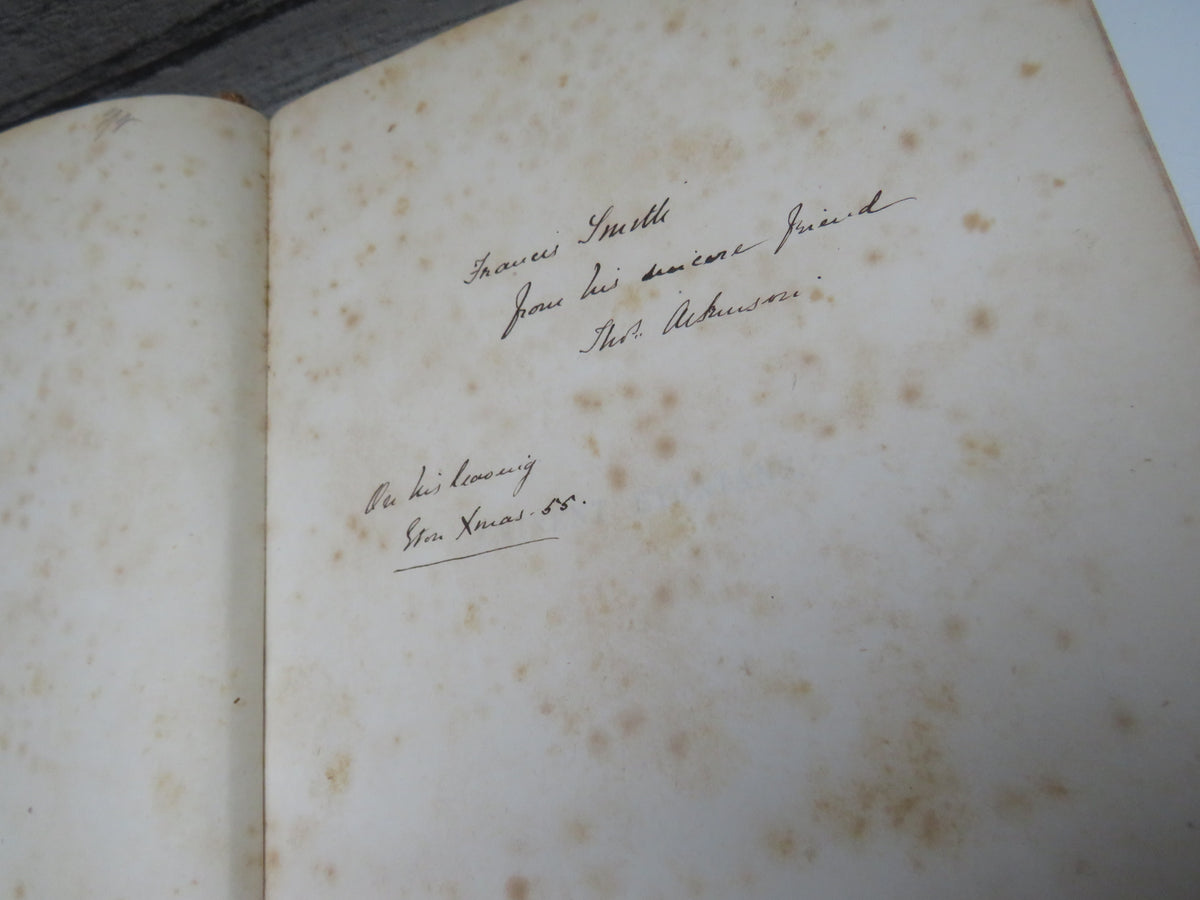 Francis Smith
from his sincere friend
Thos. Atkinson.
On his leaving
Eton Xmas. 55.